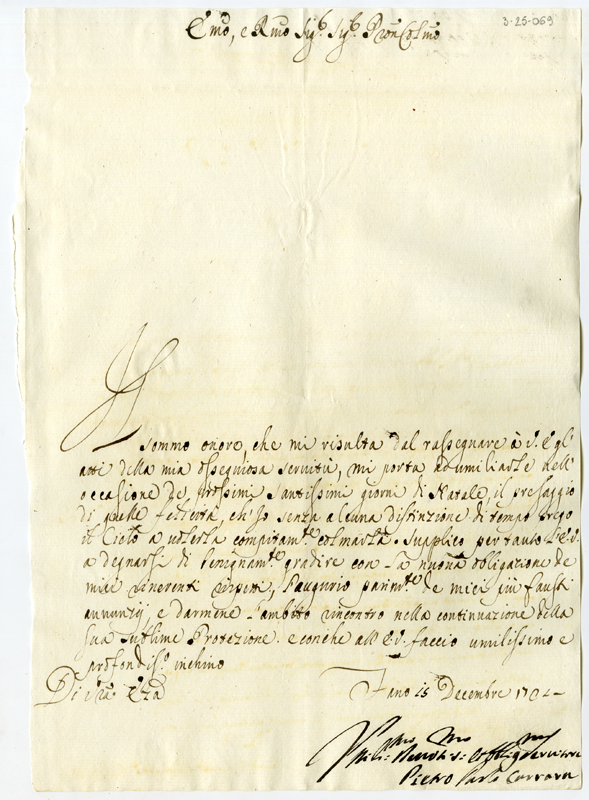 3-25-069
Emo, e Rmo Sigr. Sigr. Pron Colmo
Il
sommo onore, che mi risulta dal rassegnare à V. E. gl'
atti della mia ossequiosa servitù, mi porta ad umiliarle nell'
occasione de prossimi santissimi giorni di Natale, il presaggio
di quelle felicità, ch'Io senza alcuna distinzione di tempo prego
il Cielo a volerla compitamte. colmarla. Supplico per tanto l'E. V.
a degnarsi di benignamte. gradire con la nuova obligazione de
miei riverenti rispetti, l'augurio parimte. de miei più fausti
annunzij, e darmene l'ambito rincontro nella continuazione della
sua sublime Protezione. e con che all'E. V. faccio umilissimo e
profondiso. inchino
Di Vra. Eza
Fano 15 Decembre
Pietro Carrara